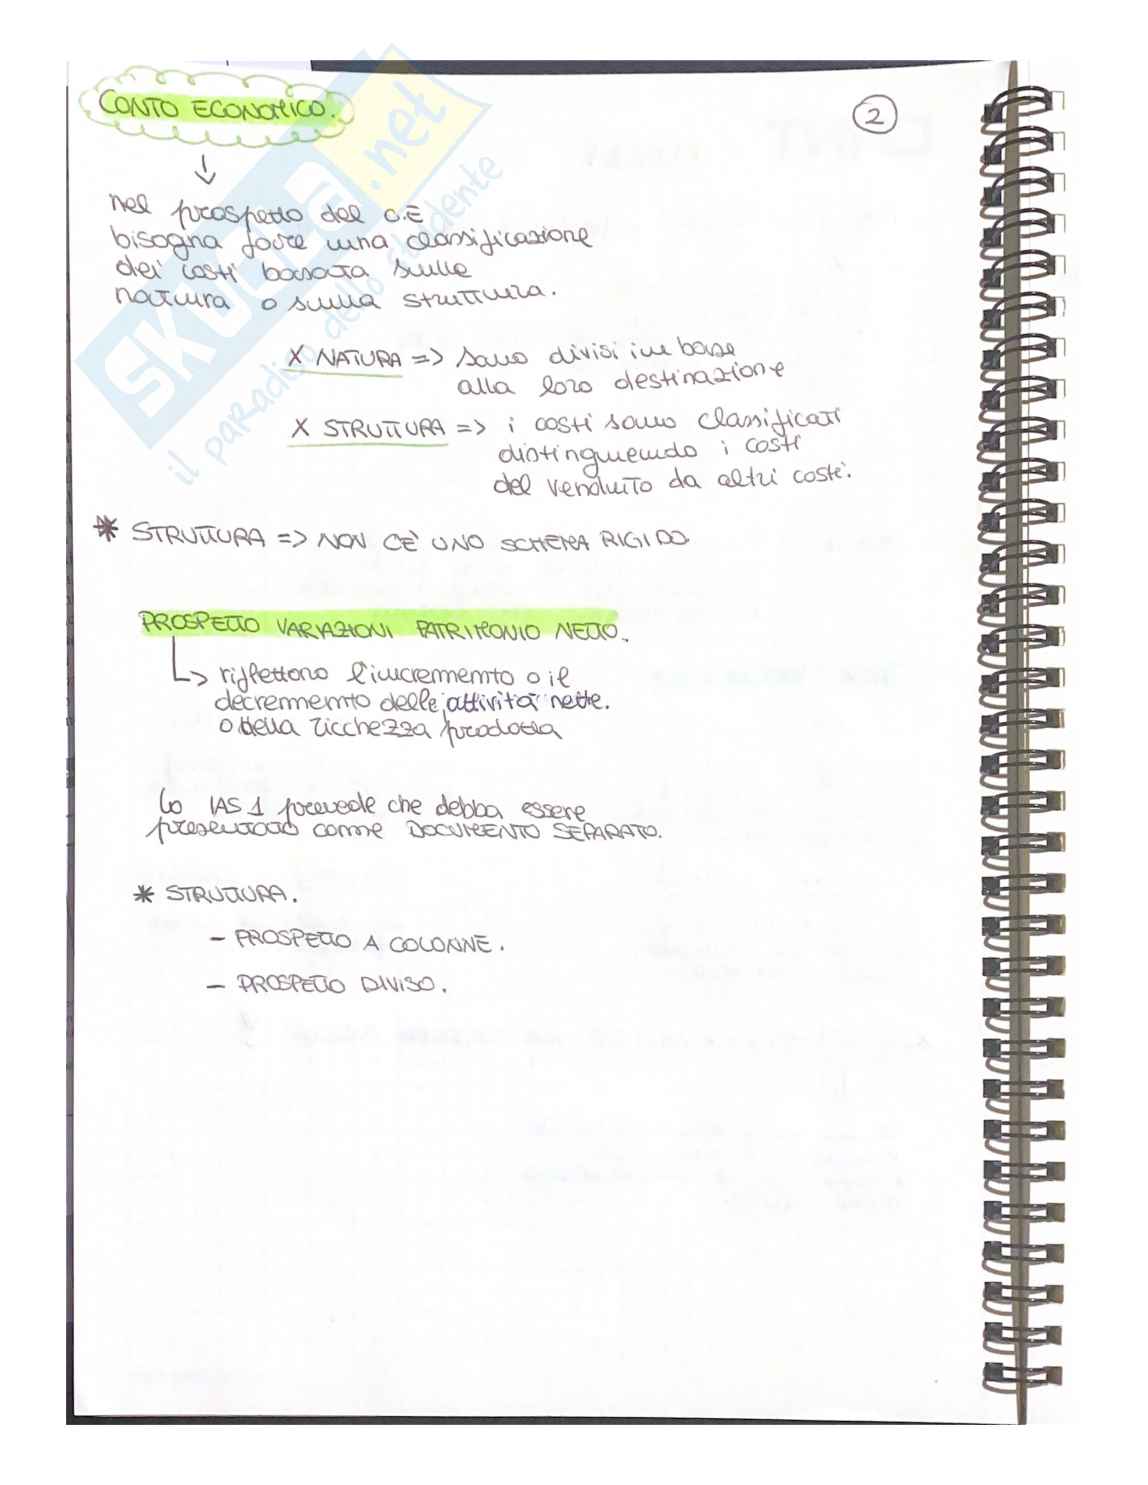 CONTO ECONOMICO.
2
nel prospetto del C.E
bisogna fare una classificazione
dei costi basata sulle
natura o sulla struttura.
X NATURA => sono divisi in base
alla loro destinazione
X STRUTTURA => i costi sono classificati
distinguendo i costi
del venduto da altri costi.
* STRUTTURA => NON C'È UNO SCHEMA RIGIDO
PROSPETTO VARIAZIONI PATRIMONIO NETTO.
↳ riflettono l'incremento o il
decremento delle attività nette.
o della ricchezza prodotta
Lo IAS 1 prevede che debba essere
presentato come DOCUMENTO SEPARATO.
* STRUTTURA.
- PROSPETTO A COLONNE.
- PROSPETTO DIVISO.
SKUOLA.net
il paradiso dello studente